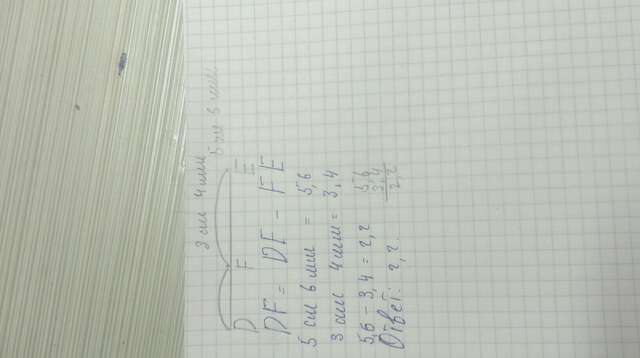 3 см 4 мм
5 см 6 мм
D F E
DF = DE - FE
5 см 6 мм = 5,6
3 см 4 мм = 3,4
5,6 - 3,4 = 2,2
5,6
3,4
2,2
Ответ: 2,2.